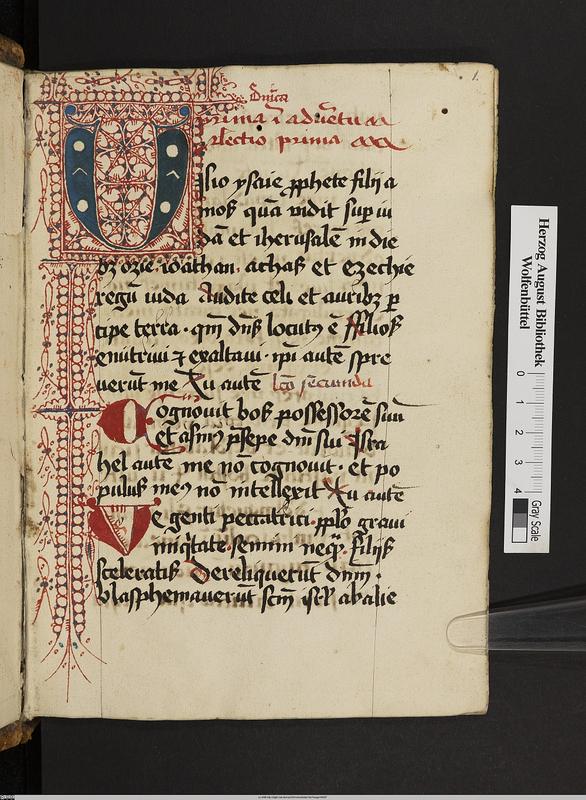 1.
Dn̄ica
prima ī adūetu
lectio prima
Uisio ysaie ꝓphete filij a
mos quā vidit suꝑ iu
dā et iherusalē in die
bꝫ ozie · ioathan · achas et ezechie
regū iuda Audite celi et auribꝫ ꝑ
cipe terra · qm̄ dn̄s locutꝰ ē ffilios
enutriui ⁊ exaltaui · ip̄i autē spre
uerūt me Tu autē lc̄o secunda
Cognouit bos possessorē suū
et asinꝰ p̄sepe dn̄i sui Isra
hel autē me nō cognouit · et po
pulus meꝰ nō intellexit Tu autē
Ve genti peccatrici · pplo graui
iniqͥtate · semini neqͣ · filijs
sceleratis Dereliquerūt dnm̄ ·
blasphemauerūt scm̄ isrl̄ abalie
Herzog August Bibliothek
Wolfenbüttel
0 1 2 3 4
Gray Scale